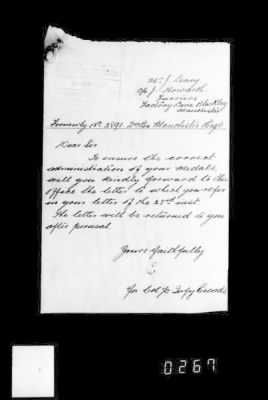 Mr J. Leary
c/o J. Howarth
Furriers
Factory Lane Blackley
Manchester
Formerly No 2891 2nd Bn Manchester Regt.
Dear Sir
To ensure the correct
administration of your medals,
will you kindly forward to this
office the letter to which you refer
in your letter of the 25th inst.
The letter will be returned to you
after perusal
Yours faithfully
for Col. Records
0267